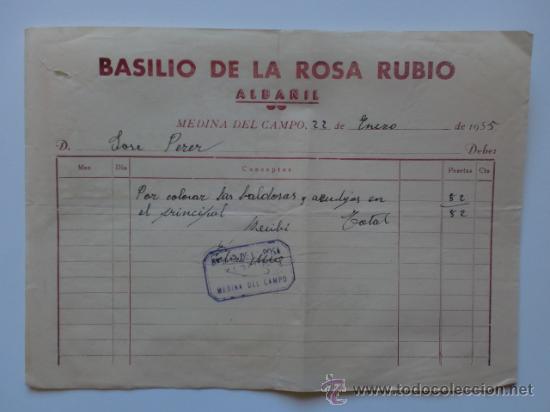 BASILIO DE LA ROSA RUBIO
ALBAÑIL
MEDINA DEL CAMPO, 22 de Enero de 1955
D. Jose Perez Debe:
Mes Día Conceptos Pesetas Cts
Por colocar las baldosas y azulejos en 82
el principal Total 82
Recibi
ROSA
MEDINA DEL CAMPO
© www.todocoleccion.net